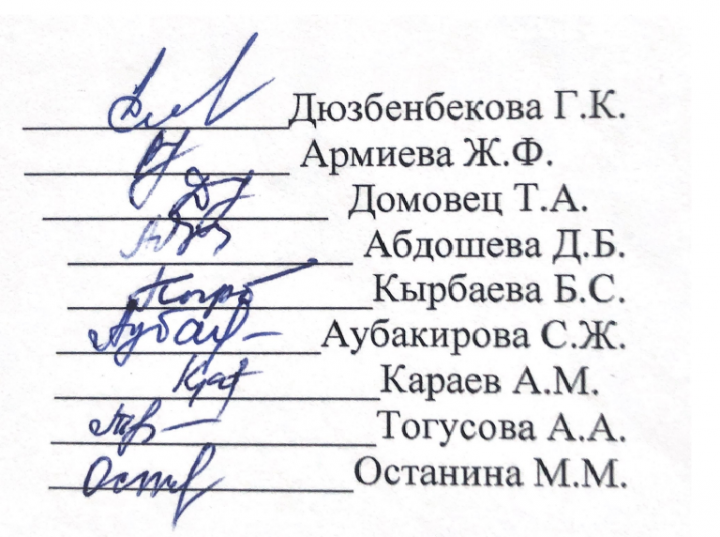 Дюзбенбекова Г.К.
Армиева Ж.Ф.
Домовец Т.А.
Абдошева Д.Б.
Кырбаева Б.С.
Аубакирова С.Ж.
Караев А.М.
Тогусова А.А.
Останина М.М.